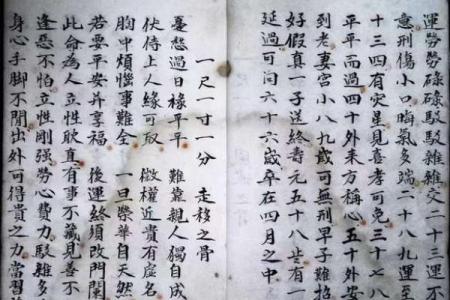 運勞勞碌碌駁駁雜雜交二十三運不
意刑傷小口晦氣多端二十八九運至
十三四有灾星見喜孝可免三十七八
平平而過四十外來方稱心五十外安
到老妻宮小八九歲可無刑早子難招
好假真一子送終壽元五十八些有一
延過可問六十六歲卒在四月之中
一尺一寸一分 走移之骨
憂愁過日緣平平 難靠親人獨自成
伏侍上人緣可取 微權近貴有虛名
胸中煩惱事難全 一旦榮華自天然
若要平安并享福 後運終須改門闌
此命為人立性耿直有事不藏見善不
逢惡不怕立性剛强勞心費力駁雜多
身心手脚不閒出外可得貴之力當習